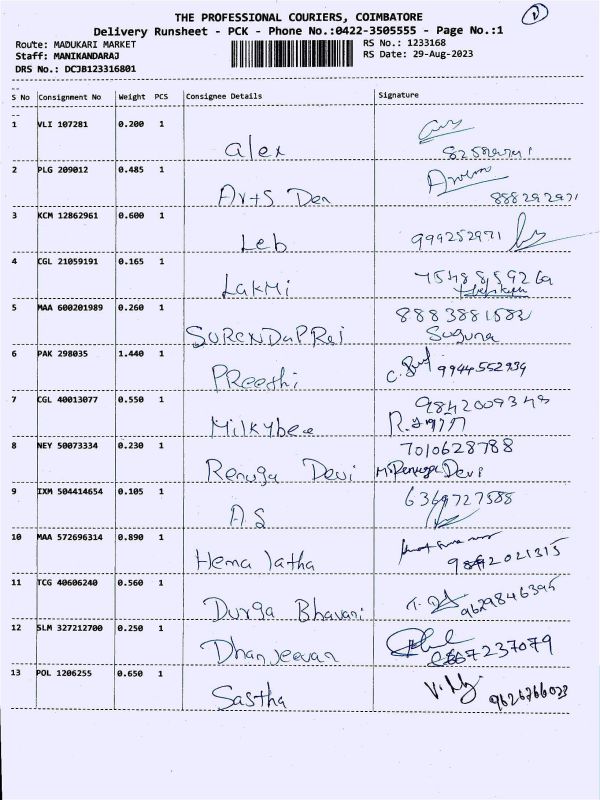 THE PROFESSIONAL COURIERS, COIMBATORE
Delivery Runsheet - PCK - Phone No.:0422-3505555 - Page No.:1
Route: MADUKARI MARKET RS No.: 1233168
Staff: MANIKANDARAJ RS Date: 29-Aug-2023
DRS No.: DCJB123316801
S No Consignment No Weight PCS Consignee Details Signature
1 VLI 107281 0.200 1
alex
2 PLG 209012 0.485 1
Arts Den 888292971
3 KCM 12862961 0.600 1
Leb 999252971
4 CGL 21059191 0.165 1
LakMi
5 MAA 600201989 0.260 1 8883881582
Suguna
6 PAK 298035 1.440 1
PReethi 9944552934
7 CGL 40013077 0.550 1 9842009348
Milkybee
8 NEY 50073334 0.230 1 7010628788
Renuga Devi M.Renuga Devi
9 IXM 504414654 0.105 1 6369727588
A S
10 MAA 572696314 0.890 1
Hema latha
11 TCG 40606240 0.560 1
Durga Bhavani 9629846395
12 SLM 327212700 0.250 1
Dhanjeevan
13 POL 1206255 0.650 1
Sastha 9626766023